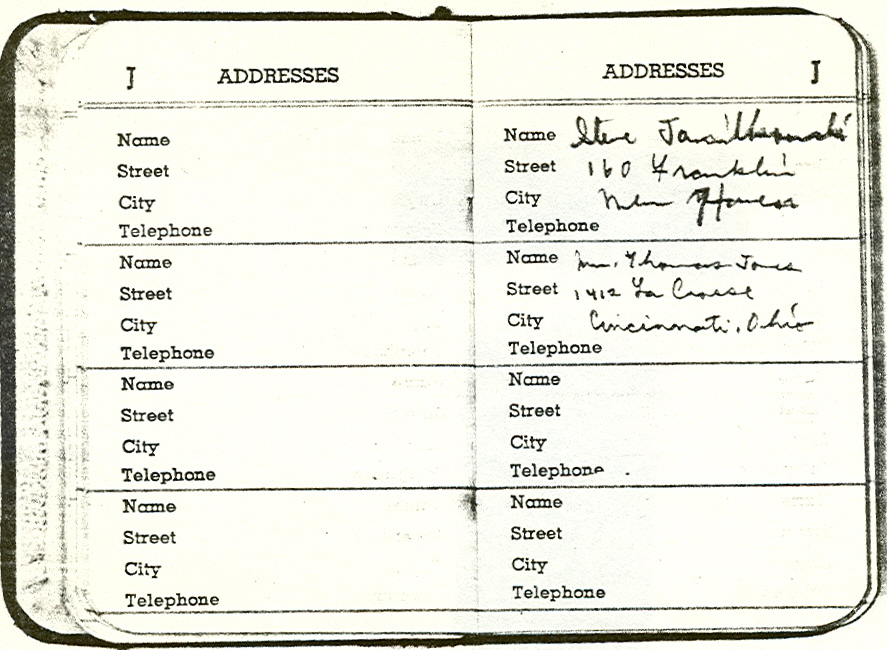 J ADDRESSES
Name
Street
City
Telephone
Name
Street
City
Telephone
Name
Street
City
Telephone
Name
Street
City
Telephone
ADDRESSES J
Name Steve
Street 160 Franklin
City New Haven
Telephone
Name Mr. Thomas Jones
Street 1412 La Crosse
City Cincinnati, Ohio
Telephone
Name
Street
City
Telephone
Name
Street
City
Telephone